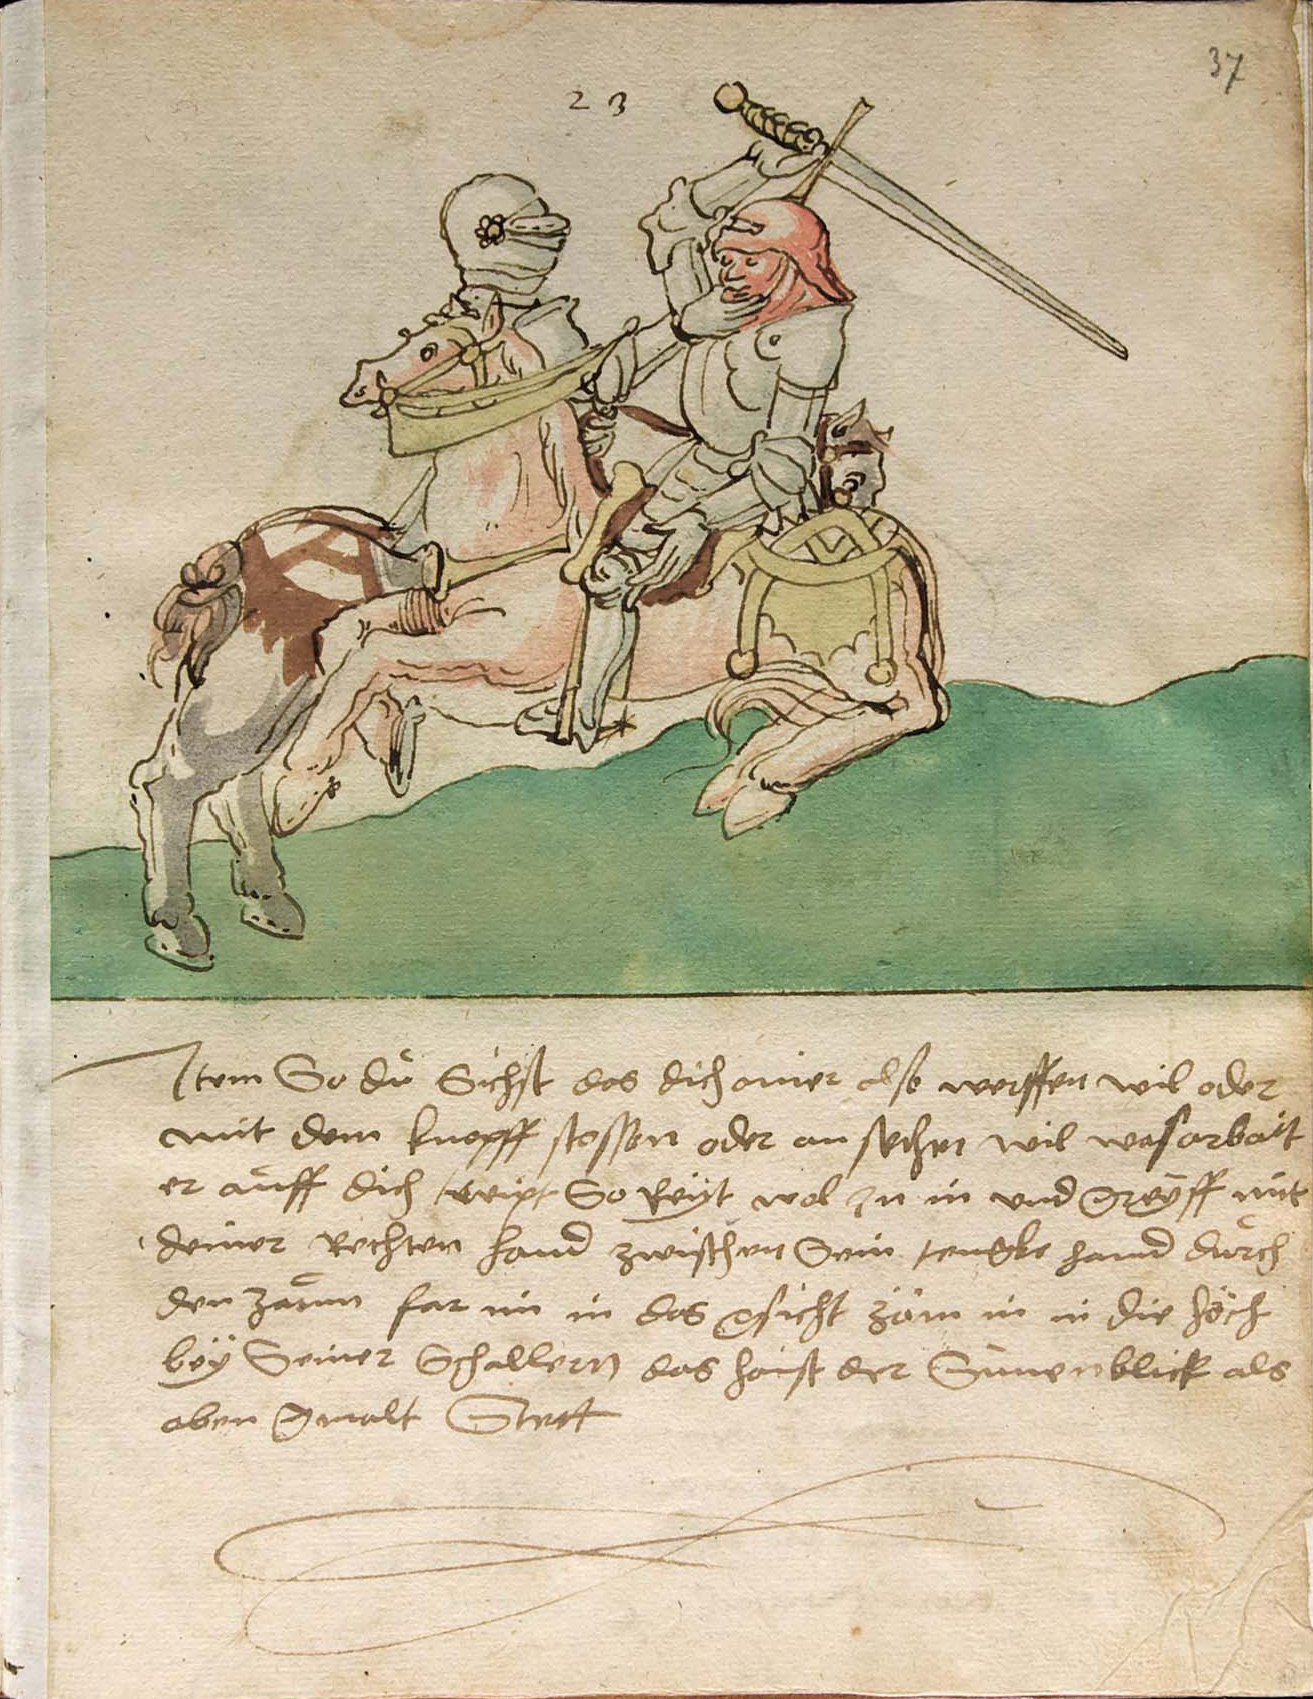 37
23
Item So dü Sichst das dich ainer also werffen wil oder
mit dem knopff stossen oder an sechen wil was arbait
er aüff dich treipt So Reyt wol zu im und greyff mit
deiner Rechten hand zwischen Sein tengke hand dürch
den zäum far im in das gsicht zöm im in die höch
bey Seiner Schallern das haist der Sunenblick als
oben gmalt Stett